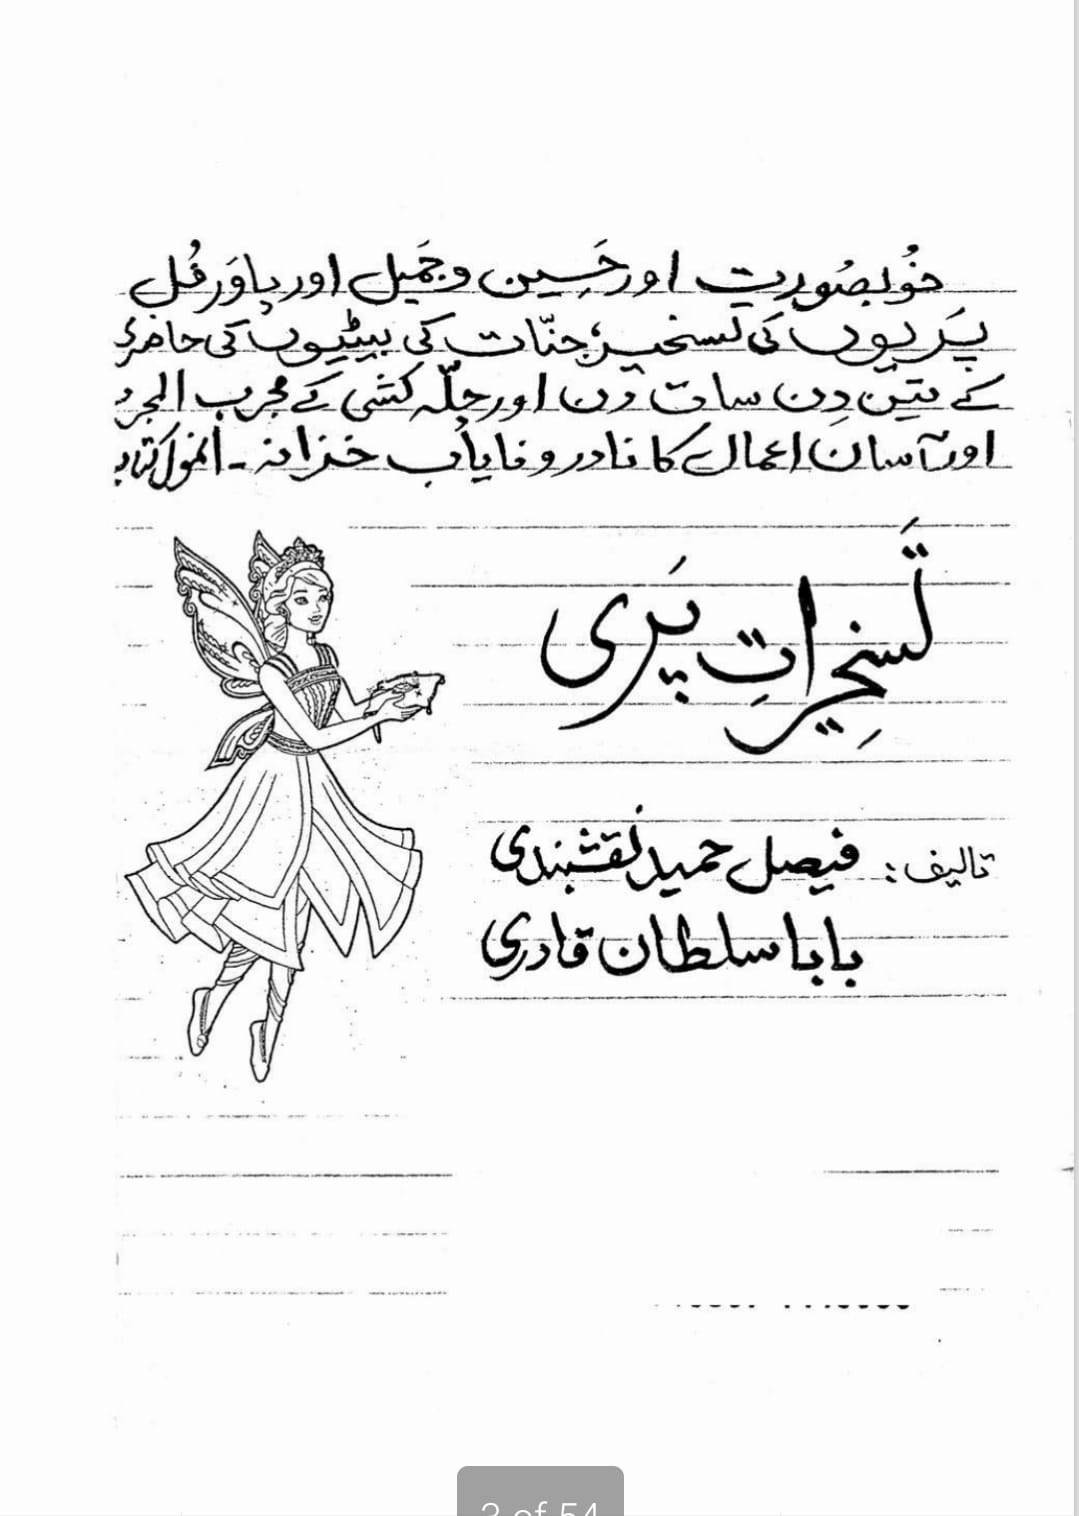 خُوبصُورت اور حَسِین و جَمیل اور پاوَر فُل
پَریوں کی تسخیر، جنّات کی بیٹیوں کی حاضری
کے تین دِن سات دن اور چلّہ کشی کے مجرب المجرب
اور آسان اعمال کا نادر و نایاب خزانہ - انمول کتاب
تَسخِیراتِ پَری
تالیف: فیصل حمید نقشبندی
بابا سلطان قادری
2 of 54